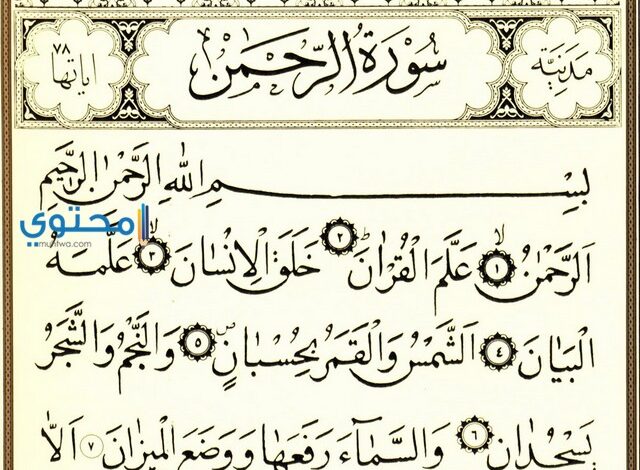 مَدَنِيَّة سُورَةُ الرَّحْمٰن اٰيَاتُهَا ٧٨
بِسْمِ اللّٰهِ الرَّحْمٰنِ الرَّحِيمِ
محتوي
muhtwa.com
اَلرَّحْمٰنُۙ ١ عَلَّمَ الْقُرْاٰنَۜ ٢ خَلَقَ الْاِنْسَانَۙ ٣ عَلَّمَهُ
الْبَيَانَ ٤ اَلشَّمْسُ وَالْقَمَرُ بِحُسْبَانٍۖ ٥ وَالنَّجْمُ وَالشَّجَرُ
يَسْجُدَانِ ٦ وَالسَّمَٓاءَ رَفَعَهَا وَوَضَعَ الْمِيزَانَ ٧ اَلَّا